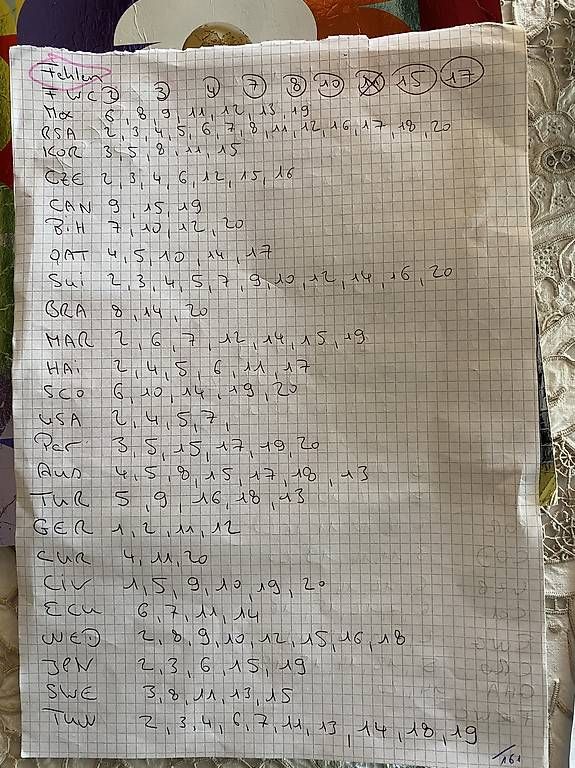 Fehlen
FWC 2 3 4 7 8 10 15 17
Mex 6, 8, 9, 11, 12, 13, 19
RSA 2, 3, 4, 5, 6, 7, 8, 11, 12, 16, 17, 18, 20
KOR 3, 5, 8, 11, 15
CZE 2, 3, 4, 6, 12, 15, 16
CAN 9, 15, 19
BiH 7, 10, 12, 20
QAT 4, 5, 10, 14, 17
Sui 2, 3, 4, 5, 7, 9, 10, 12, 14, 16, 20
BRA 8, 14, 20
MAR 2, 6, 7, 12, 14, 15, 19
HAi 2, 4, 5, 6, 11, 17
SCO 6, 10, 14, 19, 20
USA 2, 4, 5, 7,
Par 3, 5, 15, 17, 19, 20
Aus 4, 5, 8, 15, 17, 18, 13
TUR 5, 9, 16, 18, 13
GER 1, 2, 11, 12
CUR 4, 11, 20
Civ 1, 5, 9, 10, 19, 20
ECU 6, 7, 11, 14
NED 2, 8, 9, 10, 12, 15, 16, 18
JPN 2, 3, 6, 15, 19
SWE 3, 8, 11, 13, 15
TUN 2, 3, 4, 6, 7, 11, 13, 14, 18, 19
/161